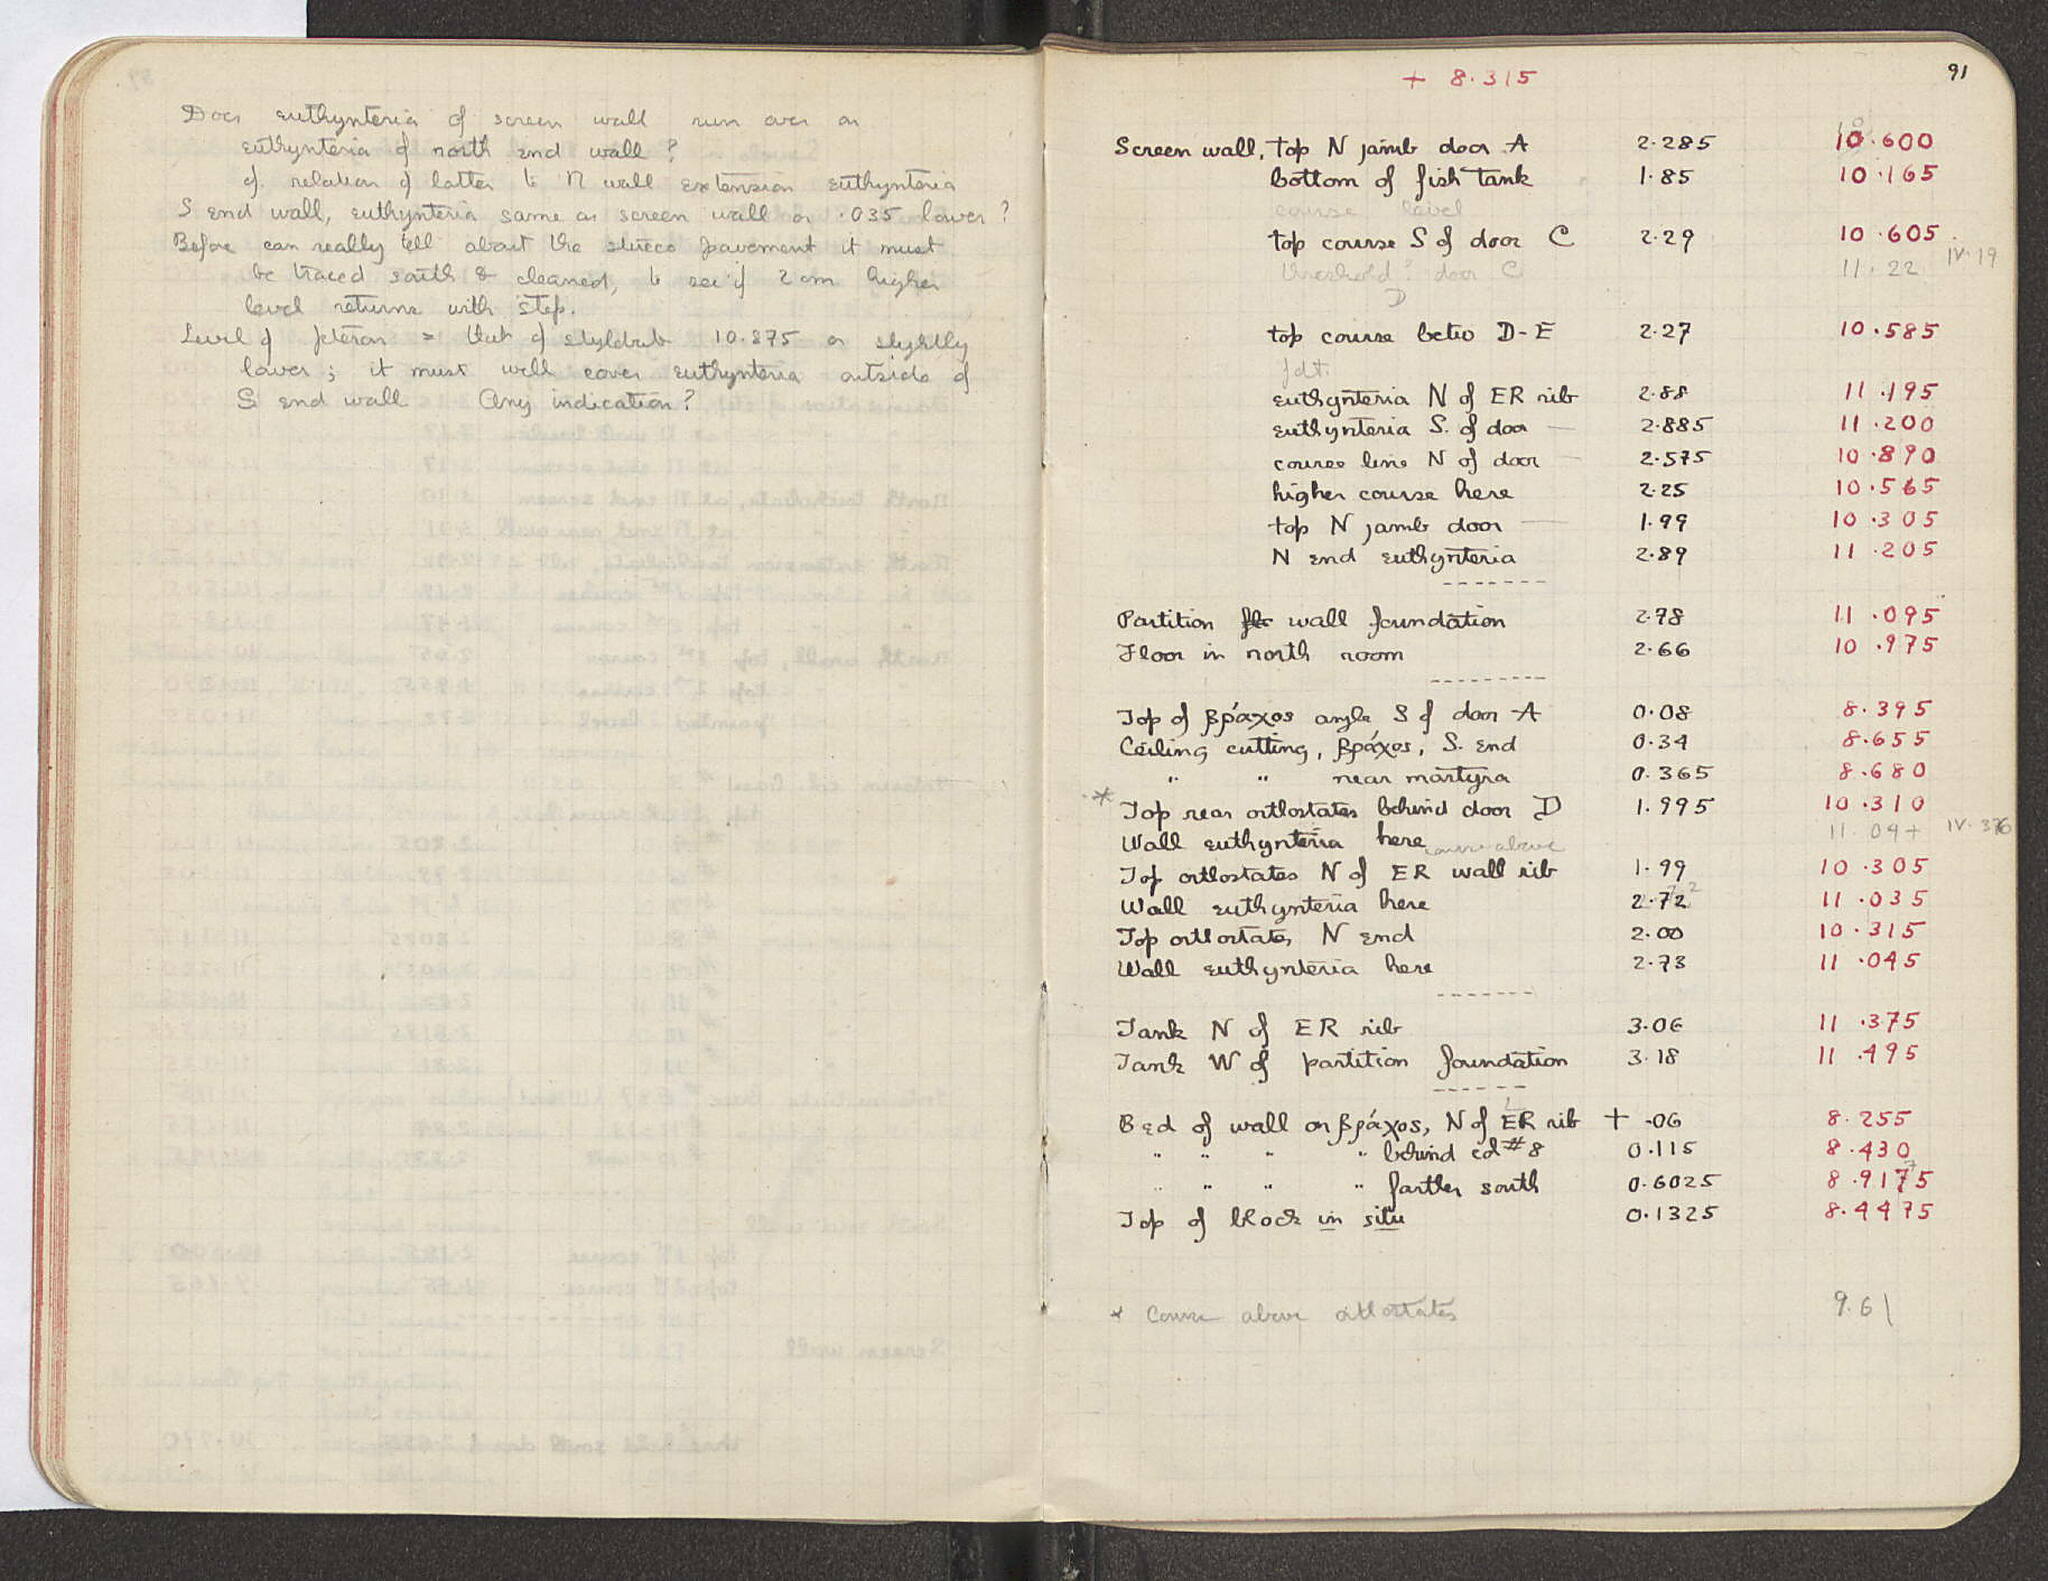 Does euthynteria of screen wall run over on
euthynteria of north end wall?
cf. relation of latter to N wall extension euthynteria
S end wall, euthynteria same as screen wall or .035 lower?
Before can really tell about the stucco pavement it must
be traced south & cleaned, to see if 2 cm higher
level returns with step.
Level of pteron = that of stylobate 10.875 or slightly
lower; it must well cover euthynteria outside of
S end wall Any indication?
91
+ 8.315
Screen wall, top N jamb door A 2.285 10.600
bottom of fish tank 1.85 10.165
course level
top course S of door C 2.29 10.605
threshold? door C 11.22 IV.19
D
top course betw D-E 2.27 10.585
fdt.
euthynteria N of ER rib 2.88 11.195
euthynteria S. of door — 2.885 11.200
course line N of door — 2.575 10.890
higher course here 2.25 10.565
top N jamb door — 1.99 10.305
N end euthynteria 2.89 11.205
Partition wall foundation 2.78 11.095
Floor in north room 2.66 10.975
Top of βράχος angle S of door A 0.08 8.395
Ceiling cutting, βράχος, S. end 0.34 8.655
" " near martyra 0.365 8.680
* Top rear orthostates behind door D 1.995 10.310
Wall euthynteria here course above 11.04+ IV.376
Top orthostates N of ER wall rib 1.99 10.305
Wall euthynteria here 2.72 11.035
Top orthostates N end 2.00 10.315
Wall euthynteria here 2.73 11.045
Tank N of ER rib 3.06 11.375
Tank W of partition foundation 3.18 11.495
Bed of wall on βράχος, N of ER rib + .06 8.255
" " " " behind col #8 0.115 8.430
" " " " farther south 0.6025 8.9175
Top of block in situ 0.1325 8.4475
* Course above orthostates 9.61